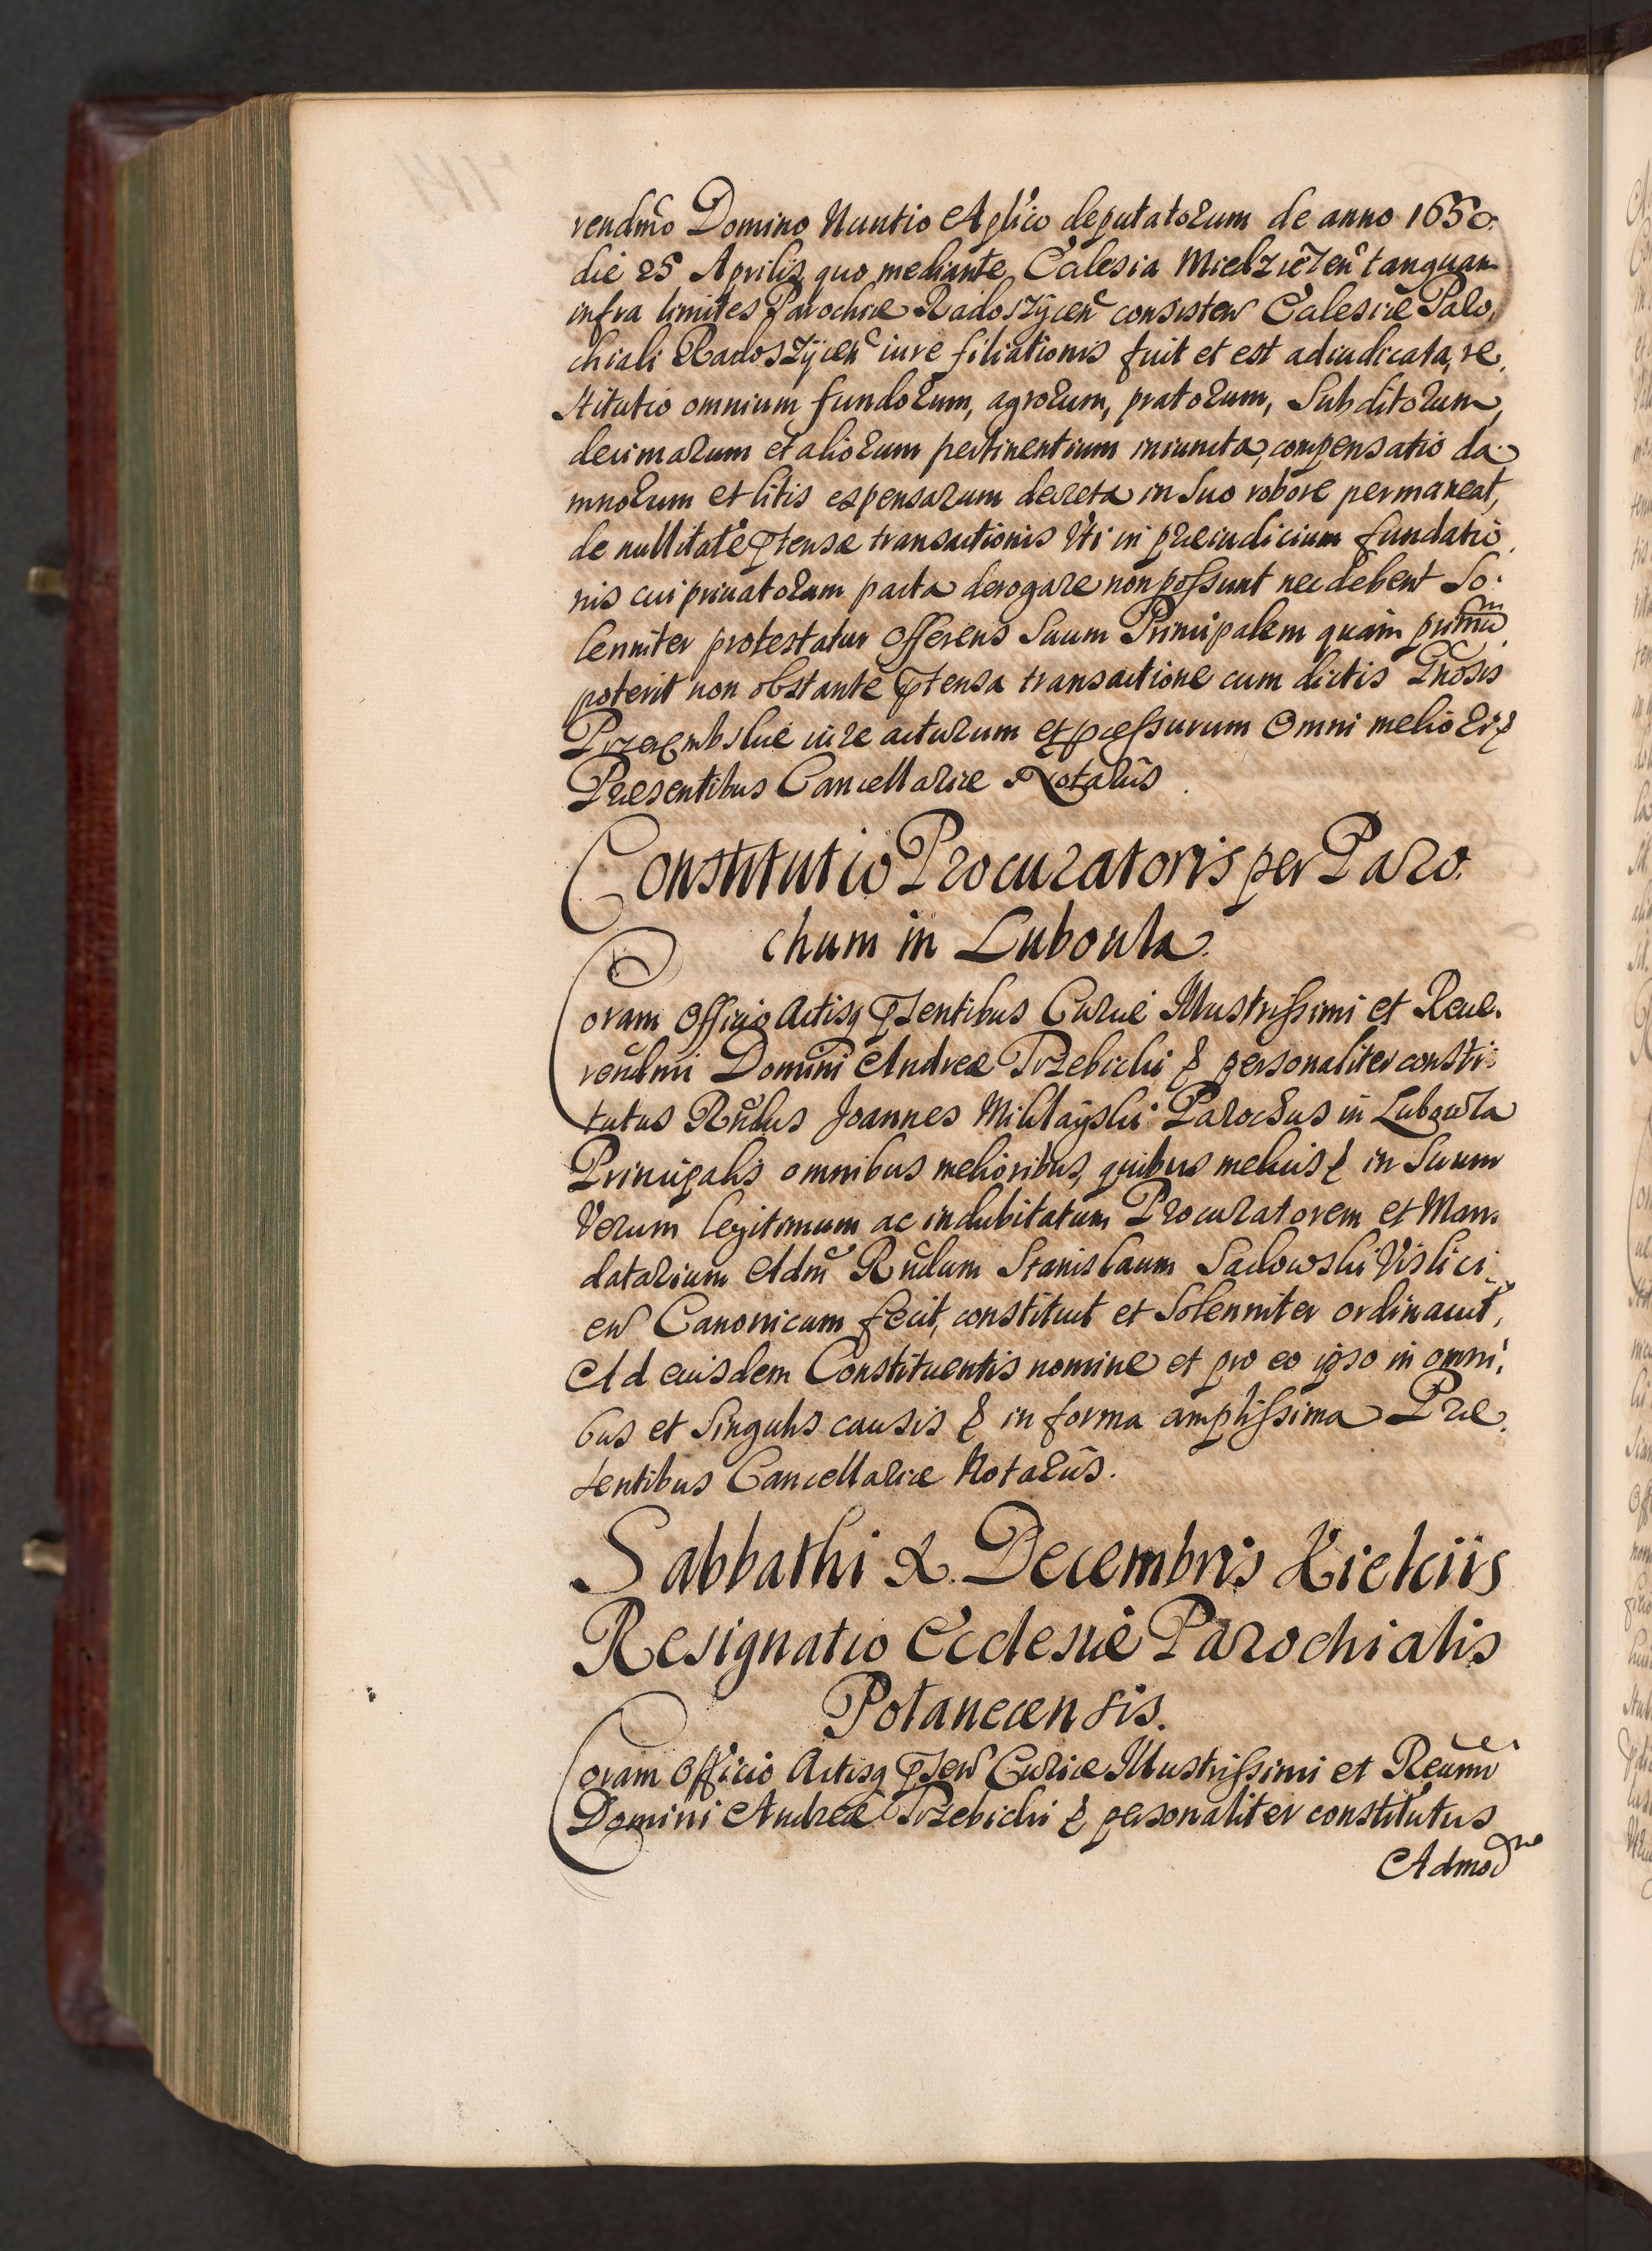 vendmo Domino Nuntio Aplico deputatorum de anno 1650.
die 25 Aprilis quo mediante, Ecclesia tanquam
infra limites Parochiæ Radoszÿcen consisten Ecclesiæ Paro,
chiali Radoszÿcen iure filiationis fuit et est adiudicata, re,
stitutio omnium fundorum, agrorum, pratorum, Subditorum,
decimarum et aliorum pertinentium iniuncta, compensatio da
mnorum et litis expensarum decreta in suo robore permaneat,
de nullitate ptensæ transactionis Uti in præiudicium fundatio,
nis cui priuatorum pacta derogare non possunt nec debent So:
lenniter protestatur offerens Suum Principalem quam primum
poterit non obstante ptensa transactione cum dictis Gnosis
iure acturum et pcessurum Omni meliori &
Præsentibus Cancellariæ Notariis.
Constitutio Procuratoris per Paro.
chum in Luborzta.
Coram Officio Actisq pсentibus Curiæ Illustrissimi et Reue.
rendmi Domini Andreæ Trzebicki & personaliter consti:
tutus Rndus Joannes Mikłaÿski Parochus in Luborzta
Principalis omnibus melioribus, quibus melius & in Suum
Verum legitimum ac indubitatum Procuratorem et Man:
datarium Adm Rndum Stanislaum Sadowski Vislici
en Canonicum fecit, constituit et Solenniter ordinauit,
Ad eiusdem Constituentis nomine et pro eo ipso in omni:
bus et Singulis causis & in forma amplissima Præ,
sentibus Cancellariæ Notariis.
Sabbathi 2. Decembris Kielciis
Resignatio Ecclesiæ Parochialis
Potanecensis.
Coram Officio Actisq psen Curiæ Illustrissimi et Reumi
Domini Andreæ Trzebicki & personaliter constitutus
Admod